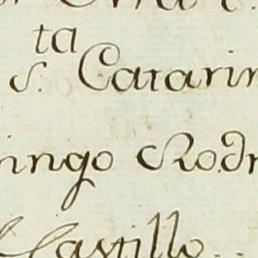 ta
s. Catarin
ingo Rodr
Castillo